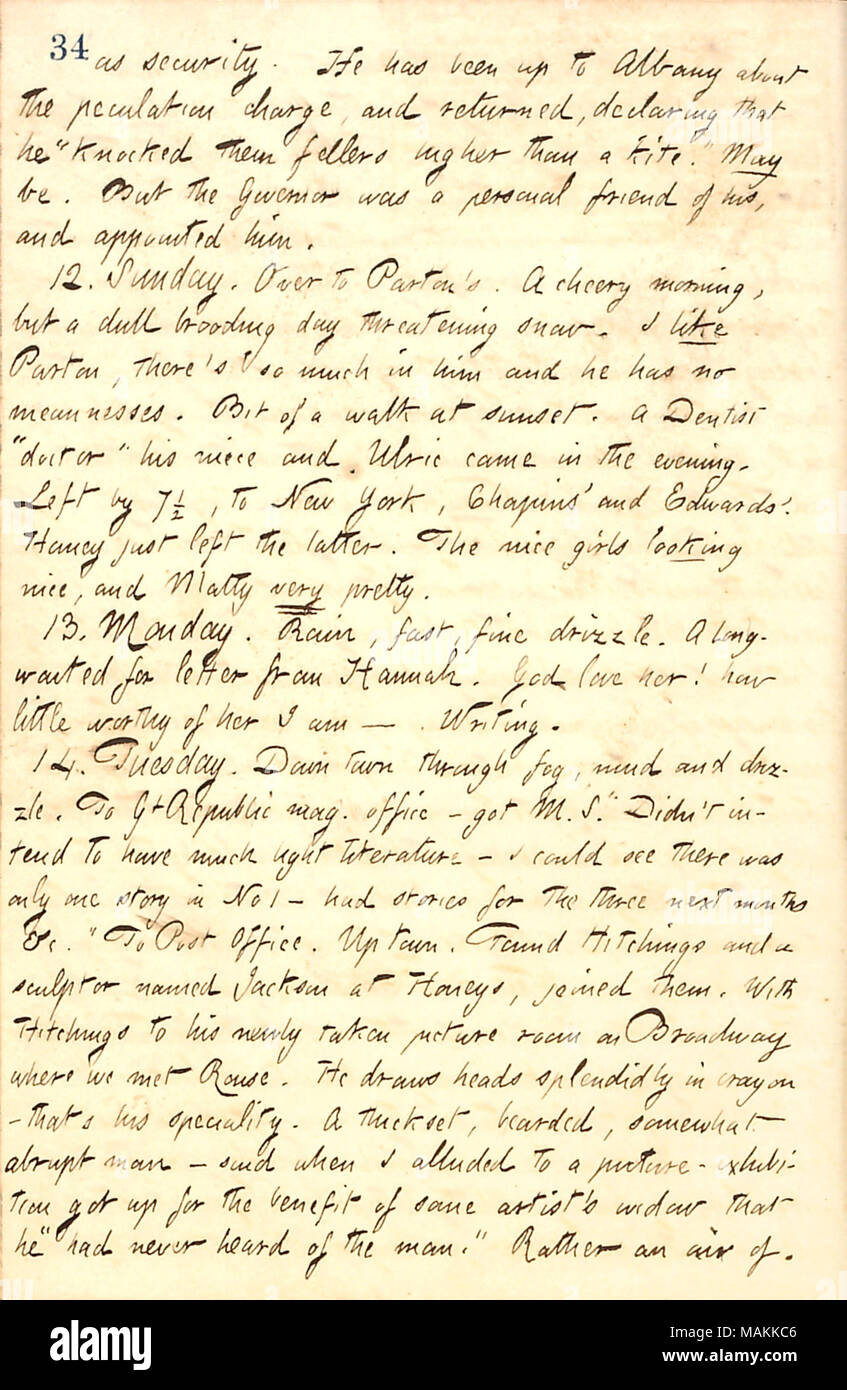 34
as security. He has been up to Albany about
the peculation charge, and returned, declaring that
he "knocked them fellers higher than a kite." May
be. But the Governor was a personal friend of his,
and appointed him.
12. Sunday. Over to Parton's. A cheery morning,
but a dull brooding day threatening snow. I like
Parton, there's so much in him and he has no
meannesses. Bit of a walk at sunset. A Dentist
"doctor" his niece and Ulric came in the evening.
Left by 7½, to New York, Chapins' and Edwards'.
Haney just left the latter. The nice girls looking
nice, and Matty very pretty.
13. Monday. Rain, fast, fine drizzle. A long-
waited for letter from Hannah. God love her! how
little worthy of her I am —. Writing.
14. Tuesday. Down town through fog, mud and driz-
zle. To Gt Republic mag. office — got M.S. "Didn't in-
tend to have much light literature — I could see there was
only one story in No 1 — had stories for the three next months
&c." To Post Office. Up town. Found Hitchings and a
sculptor named Jackson at Haneys, joined them. With
Hitchings to his newly taken picture room on Broadway
where we met Rouse. He draws heads splendidly in crayon
— that's his speciality. A thickset, bearded, somewhat
abrupt man — said when I alluded to a picture-exhibi-
tion got up for the benefit of some artist's widow that
he "had never heard of the man." Rather an air of.
alamy
a
alamy
Image ID: MAKKC6
www.alamy.com